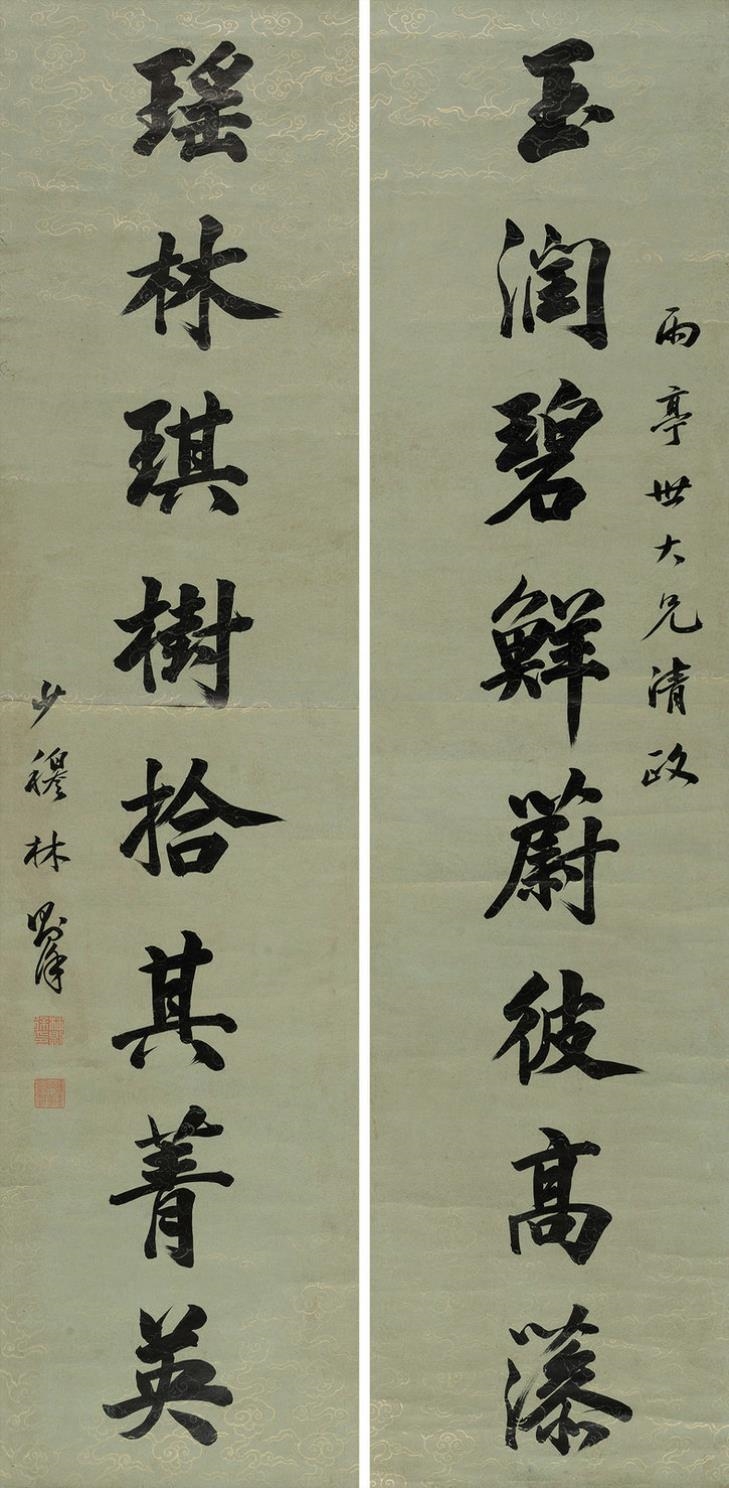 雨亭世大兄清政
玉潤碧鮮蔚彼高藻
瑤林琪樹拾其菁英
少穆林則徐